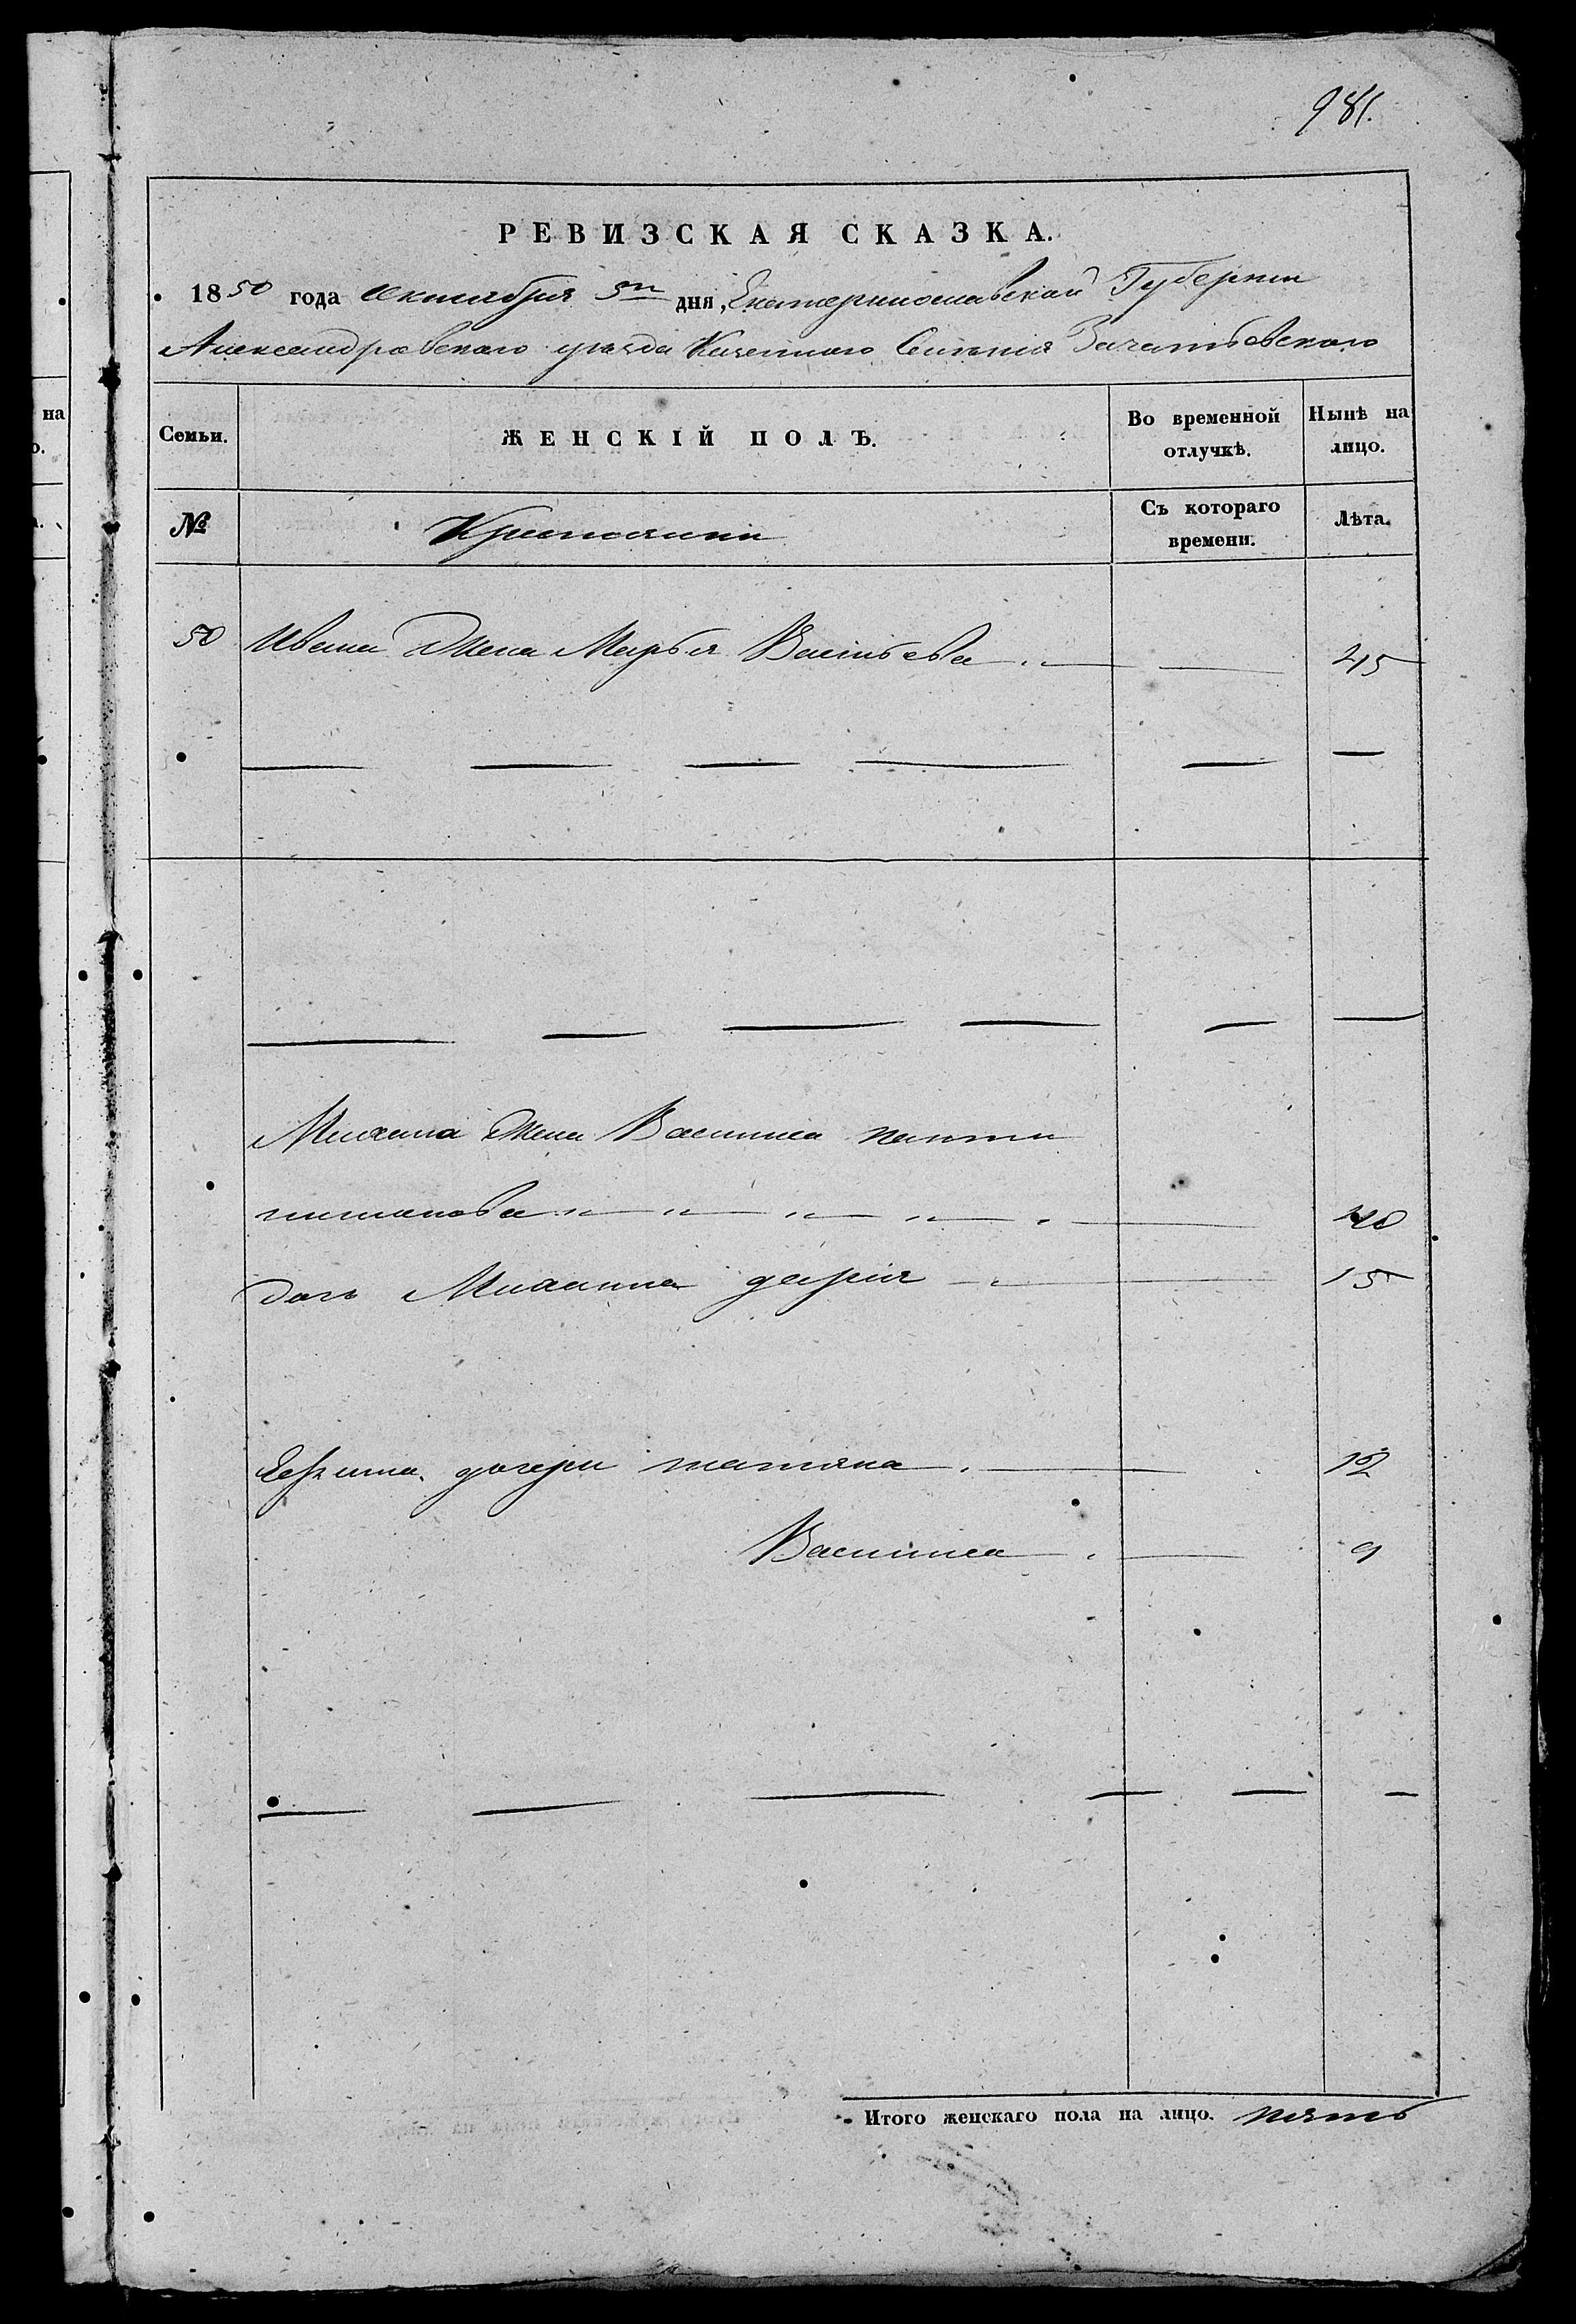 981.
РЕВИЗСКАЯ СКАЗКА.
1850 года октября 5го дня, Екатеринославской Губернии
Александровского уезда Казенного Селения Зачатьевского
Семьи.
ЖЕНСКІЙ ПОЛЪ.
Во временной отлучкѣ.
Нынѣ на лицо.
№
Крестьянии
Съ котораго времени.
Лѣта.
50 Ивана Жена Марья Васильева 45
Михаила Жена Василиса
40
дочь Михаила дарія 15
Ефима дочери татяна 12
Василиса 9
Итого женскаго пола на лицо. пять
на
о.